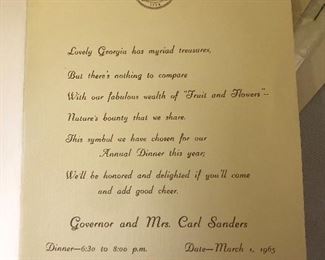 1776
Lovely Georgia has myriad treasures,
But there's nothing to compare
With our fabulous wealth of "Fruit and Flowers"--
Nature's bounty that we share.
This symbol we have chosen for our
Annual Dinner this year;
We'll be honored and delighted if you'll come
and add good cheer.
Governor and Mrs. Carl Sanders
Dinner—6:30 to 8:00 p.m. Date—March 1, 1965